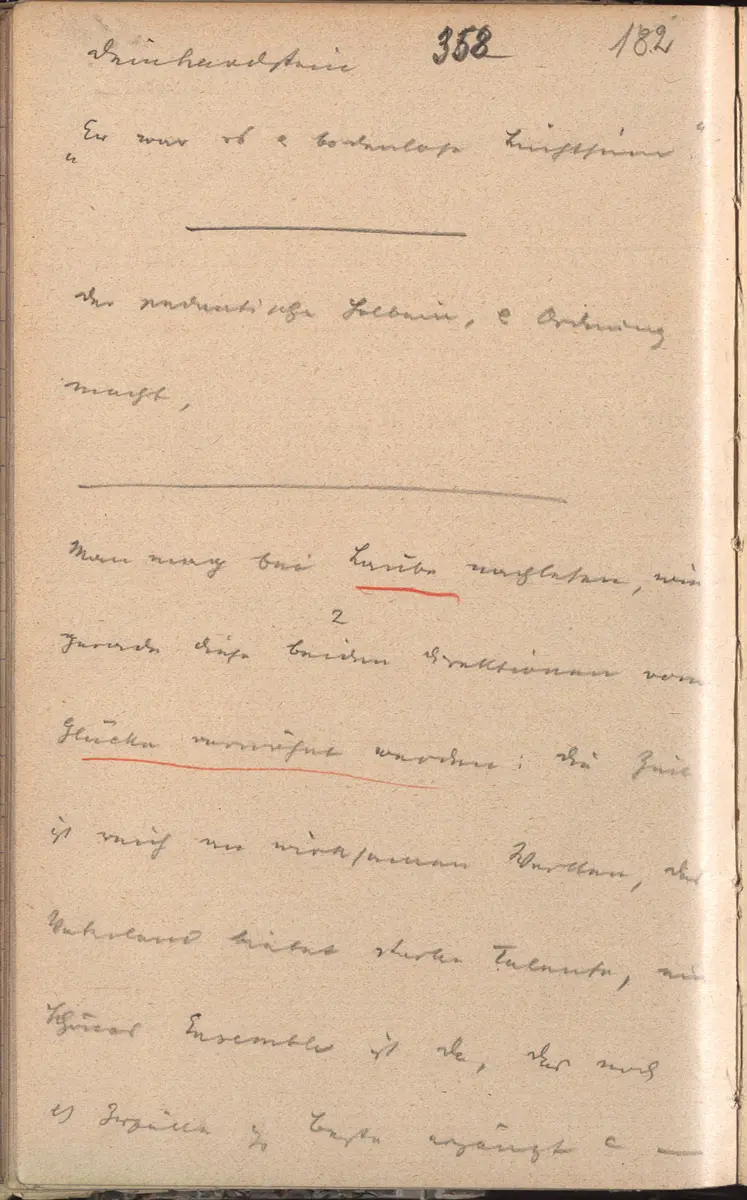 Deinhardstein 358 182
„Er war ob e bodenlose Leichtsinn“
der pedantische Holbein, e Ordnung
macht,
Man mag bei Laube nachlesen, wie
2
gerade diese beiden Direktionen vom
Glücke verwöhnt werden: die Zeit
ist reich an wirksamen Werken, das
Vaterland bietet starke Talente, ein
schönes Ensemble ist da, das noch
beste ergänzt